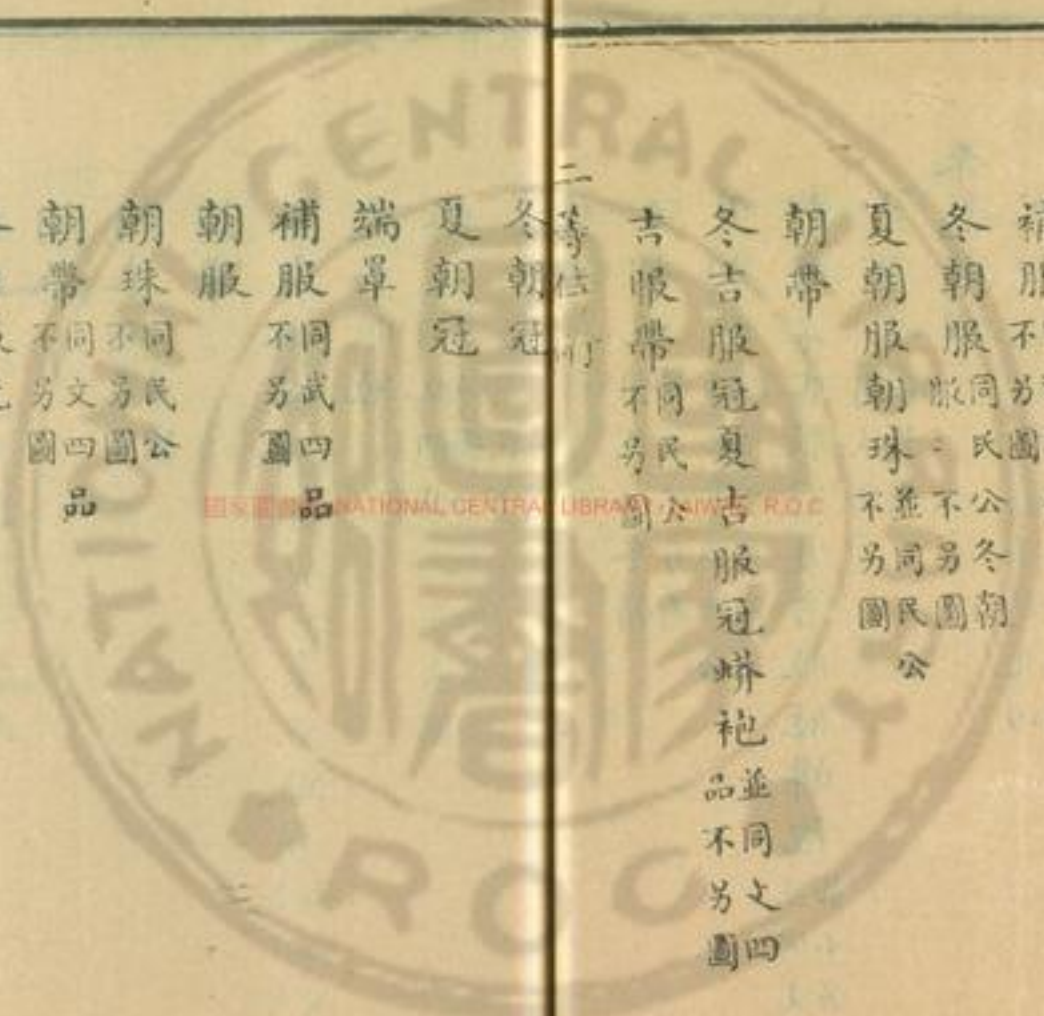 補服不另圖
冬朝服同民公冬朝服不另圖
夏朝服朝珠並同民公不另圖
朝帶
冬吉服冠夏吉服冠蟒袍並同文四品不另圖
吉服帶同民公不另圖
二等侍
冬朝冠
夏朝冠
端罩
補服同武四品不另圖
朝服
朝珠同民公不另圖
朝帶同文四品不另圖
NATIONAL CENTRAL LIBRARY
R O C
NATIONAL CENTRAL LIBRARY, TAIWAN R.O.C